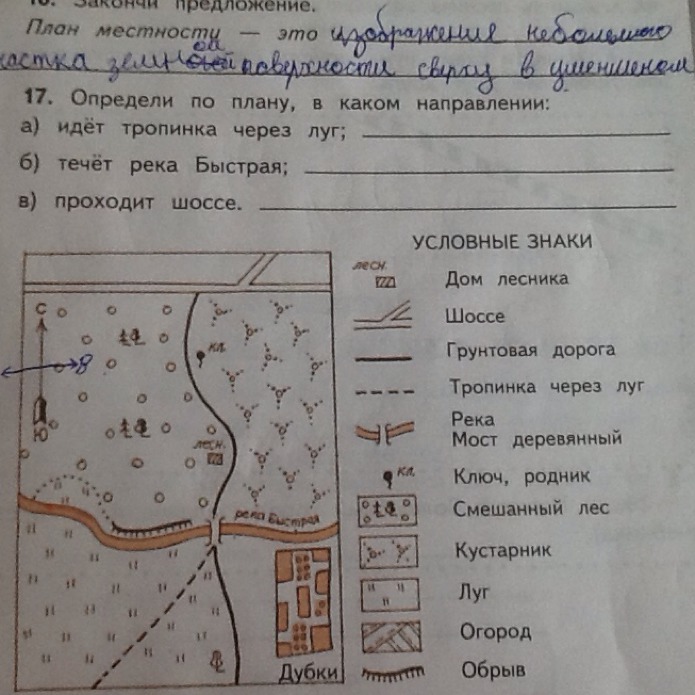 16. Закончи предложение.
План местности — это изображение небольшого
участка земной поверхности сверху в уменшеном
17. Определи по плану, в каком направлении:
а) идёт тропинка через луг;
б) течёт река Быстрая;
в) проходит шоссе.
УСЛОВНЫЕ ЗНАКИ
лесн.
Дом лесника
Шоссе
Грунтовая дорога
Тропинка через луг
Река
Мост деревянный
кл.
Ключ, родник
Смешанный лес
Кустарник
Луг
Огород
Обрыв
С
кл.
В
Ю
лесн.
река Быстрая
Дубки